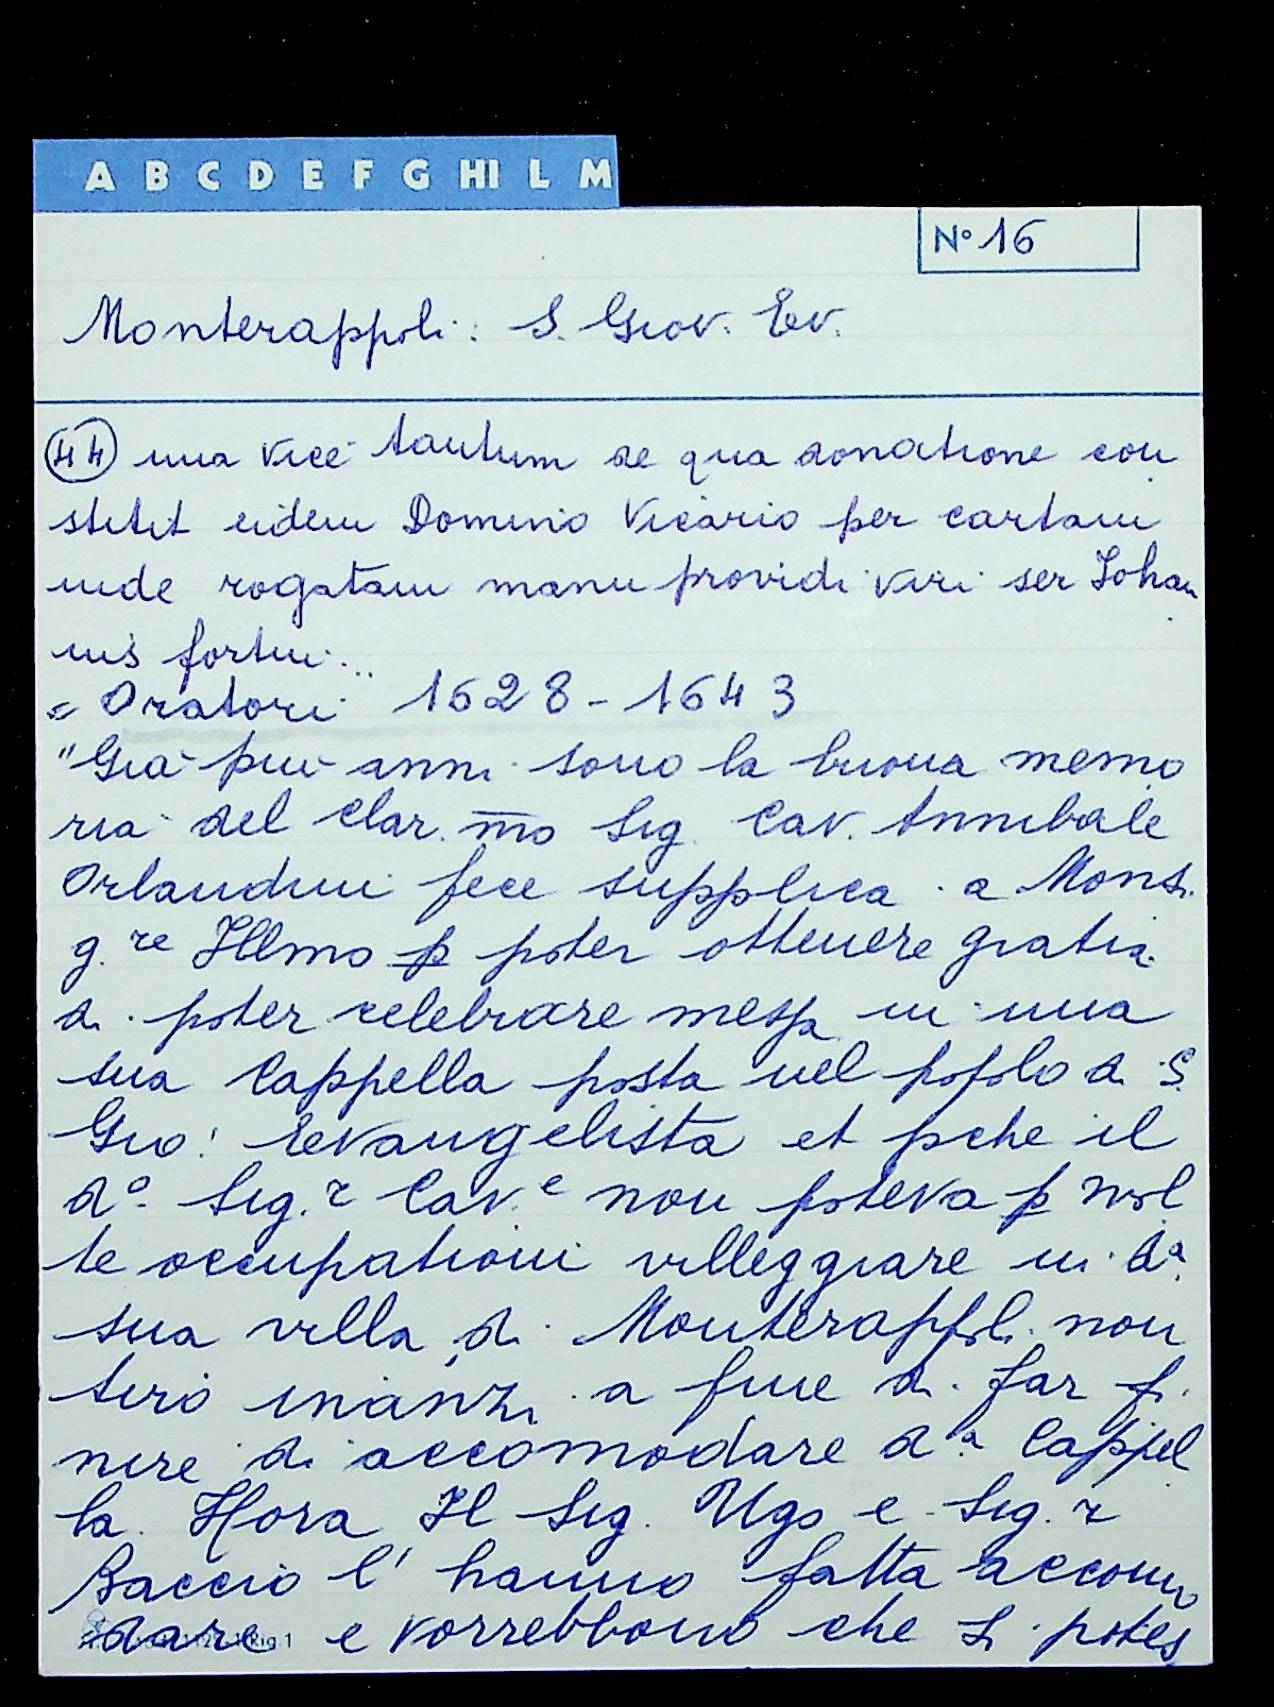 A B C D E F G HI L M
N° 16
Monterappoli: S. Giov. Ev.
(44) una vice tantum de qua donatione con
stitit eidem Domino Vicario per cartam
inde rogatam manu providi viri ser Johan
nis fortini...
= Oratori 1628-1643
"Già più anni sono la buona memo
ria del clar.mo Sig. Cav. Annibale
Orlandini fece supplica a Mons.
g.re Illmo p poter ottenere gratia
di poter celebrare messa in una
sua Cappella posta nel popolo di S.
Gio: Evangelista et pche il
d° Sig.r Cav.e non poteva p mol
te occupationi villeggiare in da
sua villa di Monterappoli non
tirò inanzi a fine di far fi
nire di accomodare da Cappel
la. Hora Il Sig. Ugo e Sig.r
Baccio l'hanno fatta accomo
dare e vorrebbono che si potes